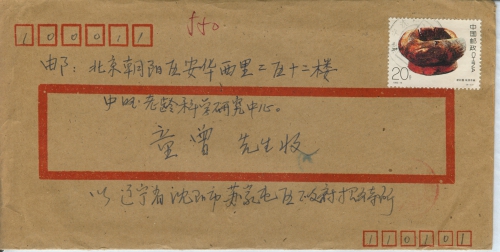 550.
100011
中国邮政
20分
邮：北京朝阳区安华西里二区十二楼
中国老龄科学研究中心。
童曾 先生收
辽宁省沈阳市苏家屯区政府招待所
110101